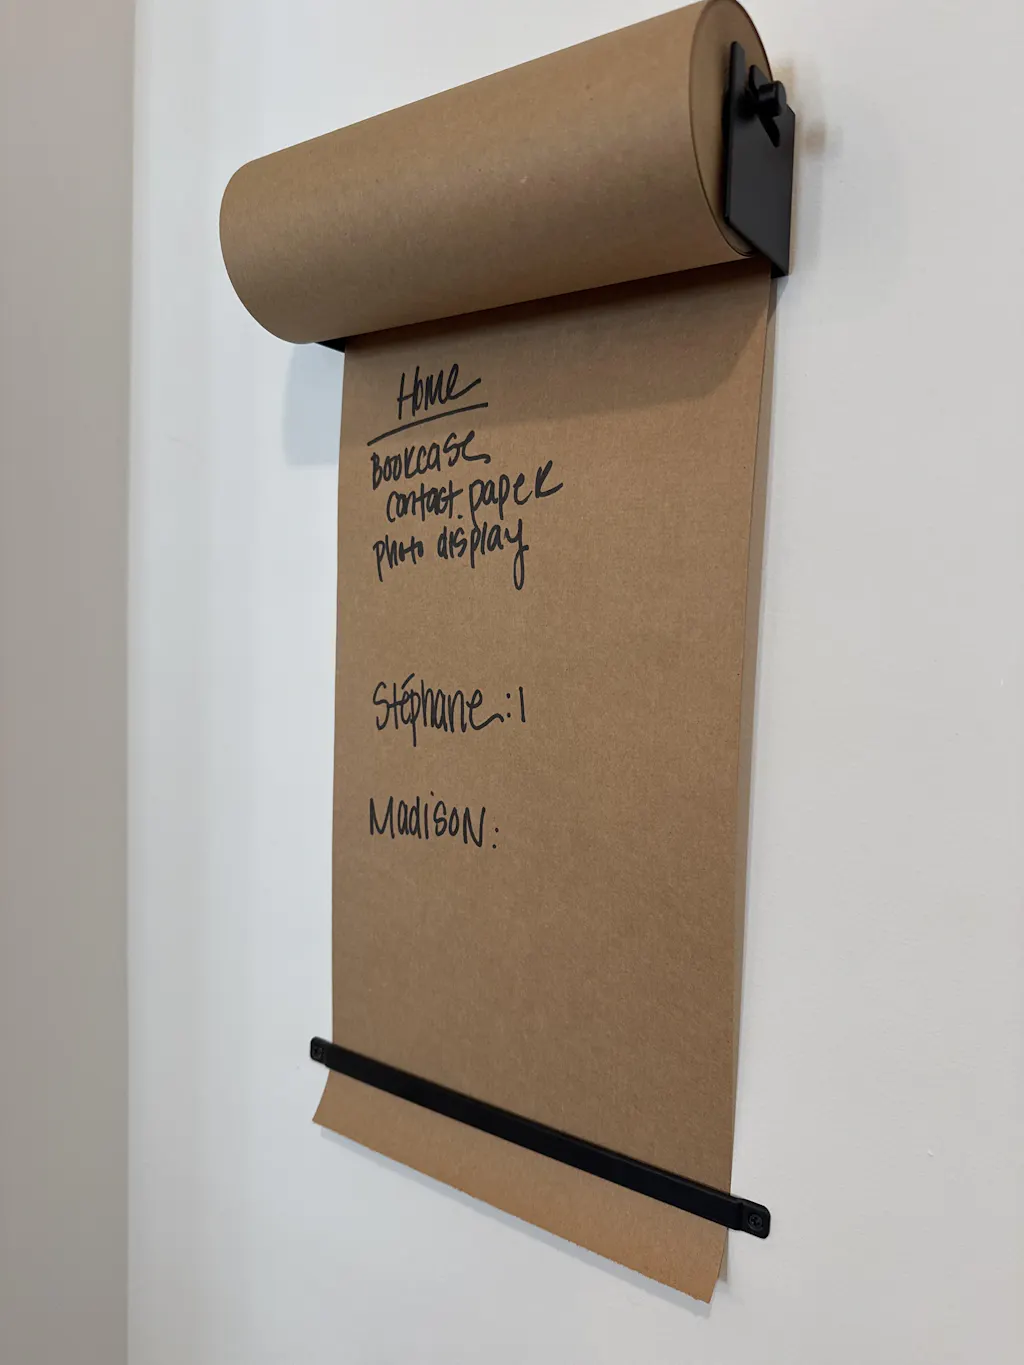 Home
Bookcase
contact paper
photo display
Stéphane: 1
Madison: